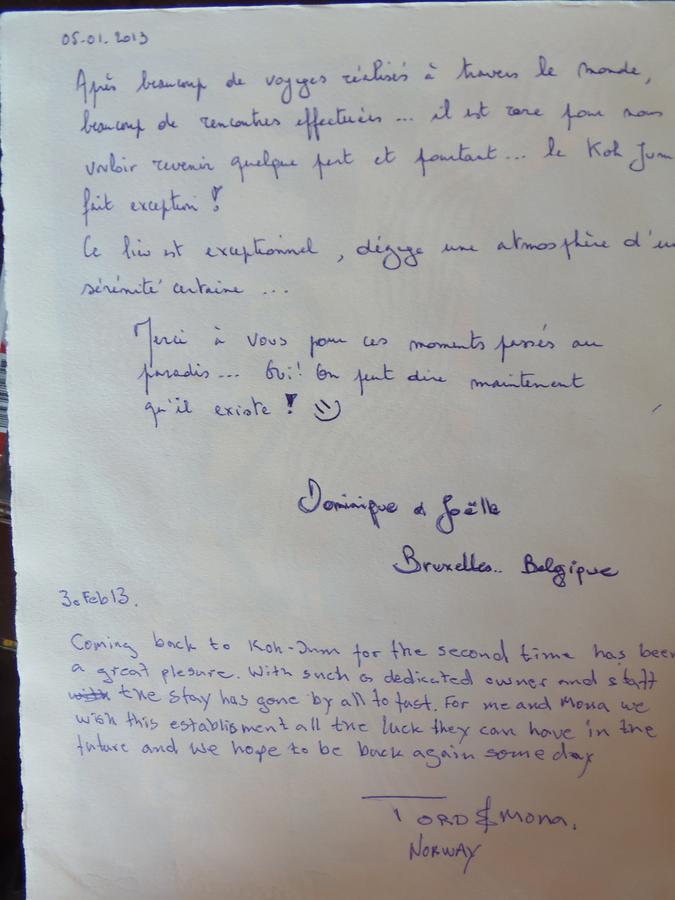 05-01.2013
Après beaucoup de voyages réalisés à travers le monde,
beaucoup de rencontres effectuées ... il est rare pour nous
vouloir revenir quelque part et pourtant ... le Koh Jum
fait exception !
Ce lieu est exceptionnel, dégage une atmosphère d'un
sérénité certaine ...
Merci à vous pour ces moments passés au
paradis ... Oui! On peut dire maintenant
qu'il existe !
Dominique & Joëlle
Bruxelles.. Belgique
3. Feb 13.
Coming back to Koh-Jum for the second time has been
a great plesure. With such a dedicated owner and staff
the stay has gone by all to fast. For me and Mona we
wish this establisment all the luck they can have in the
future and we hope to be back again some day
TORD & MONA.
NORWAY